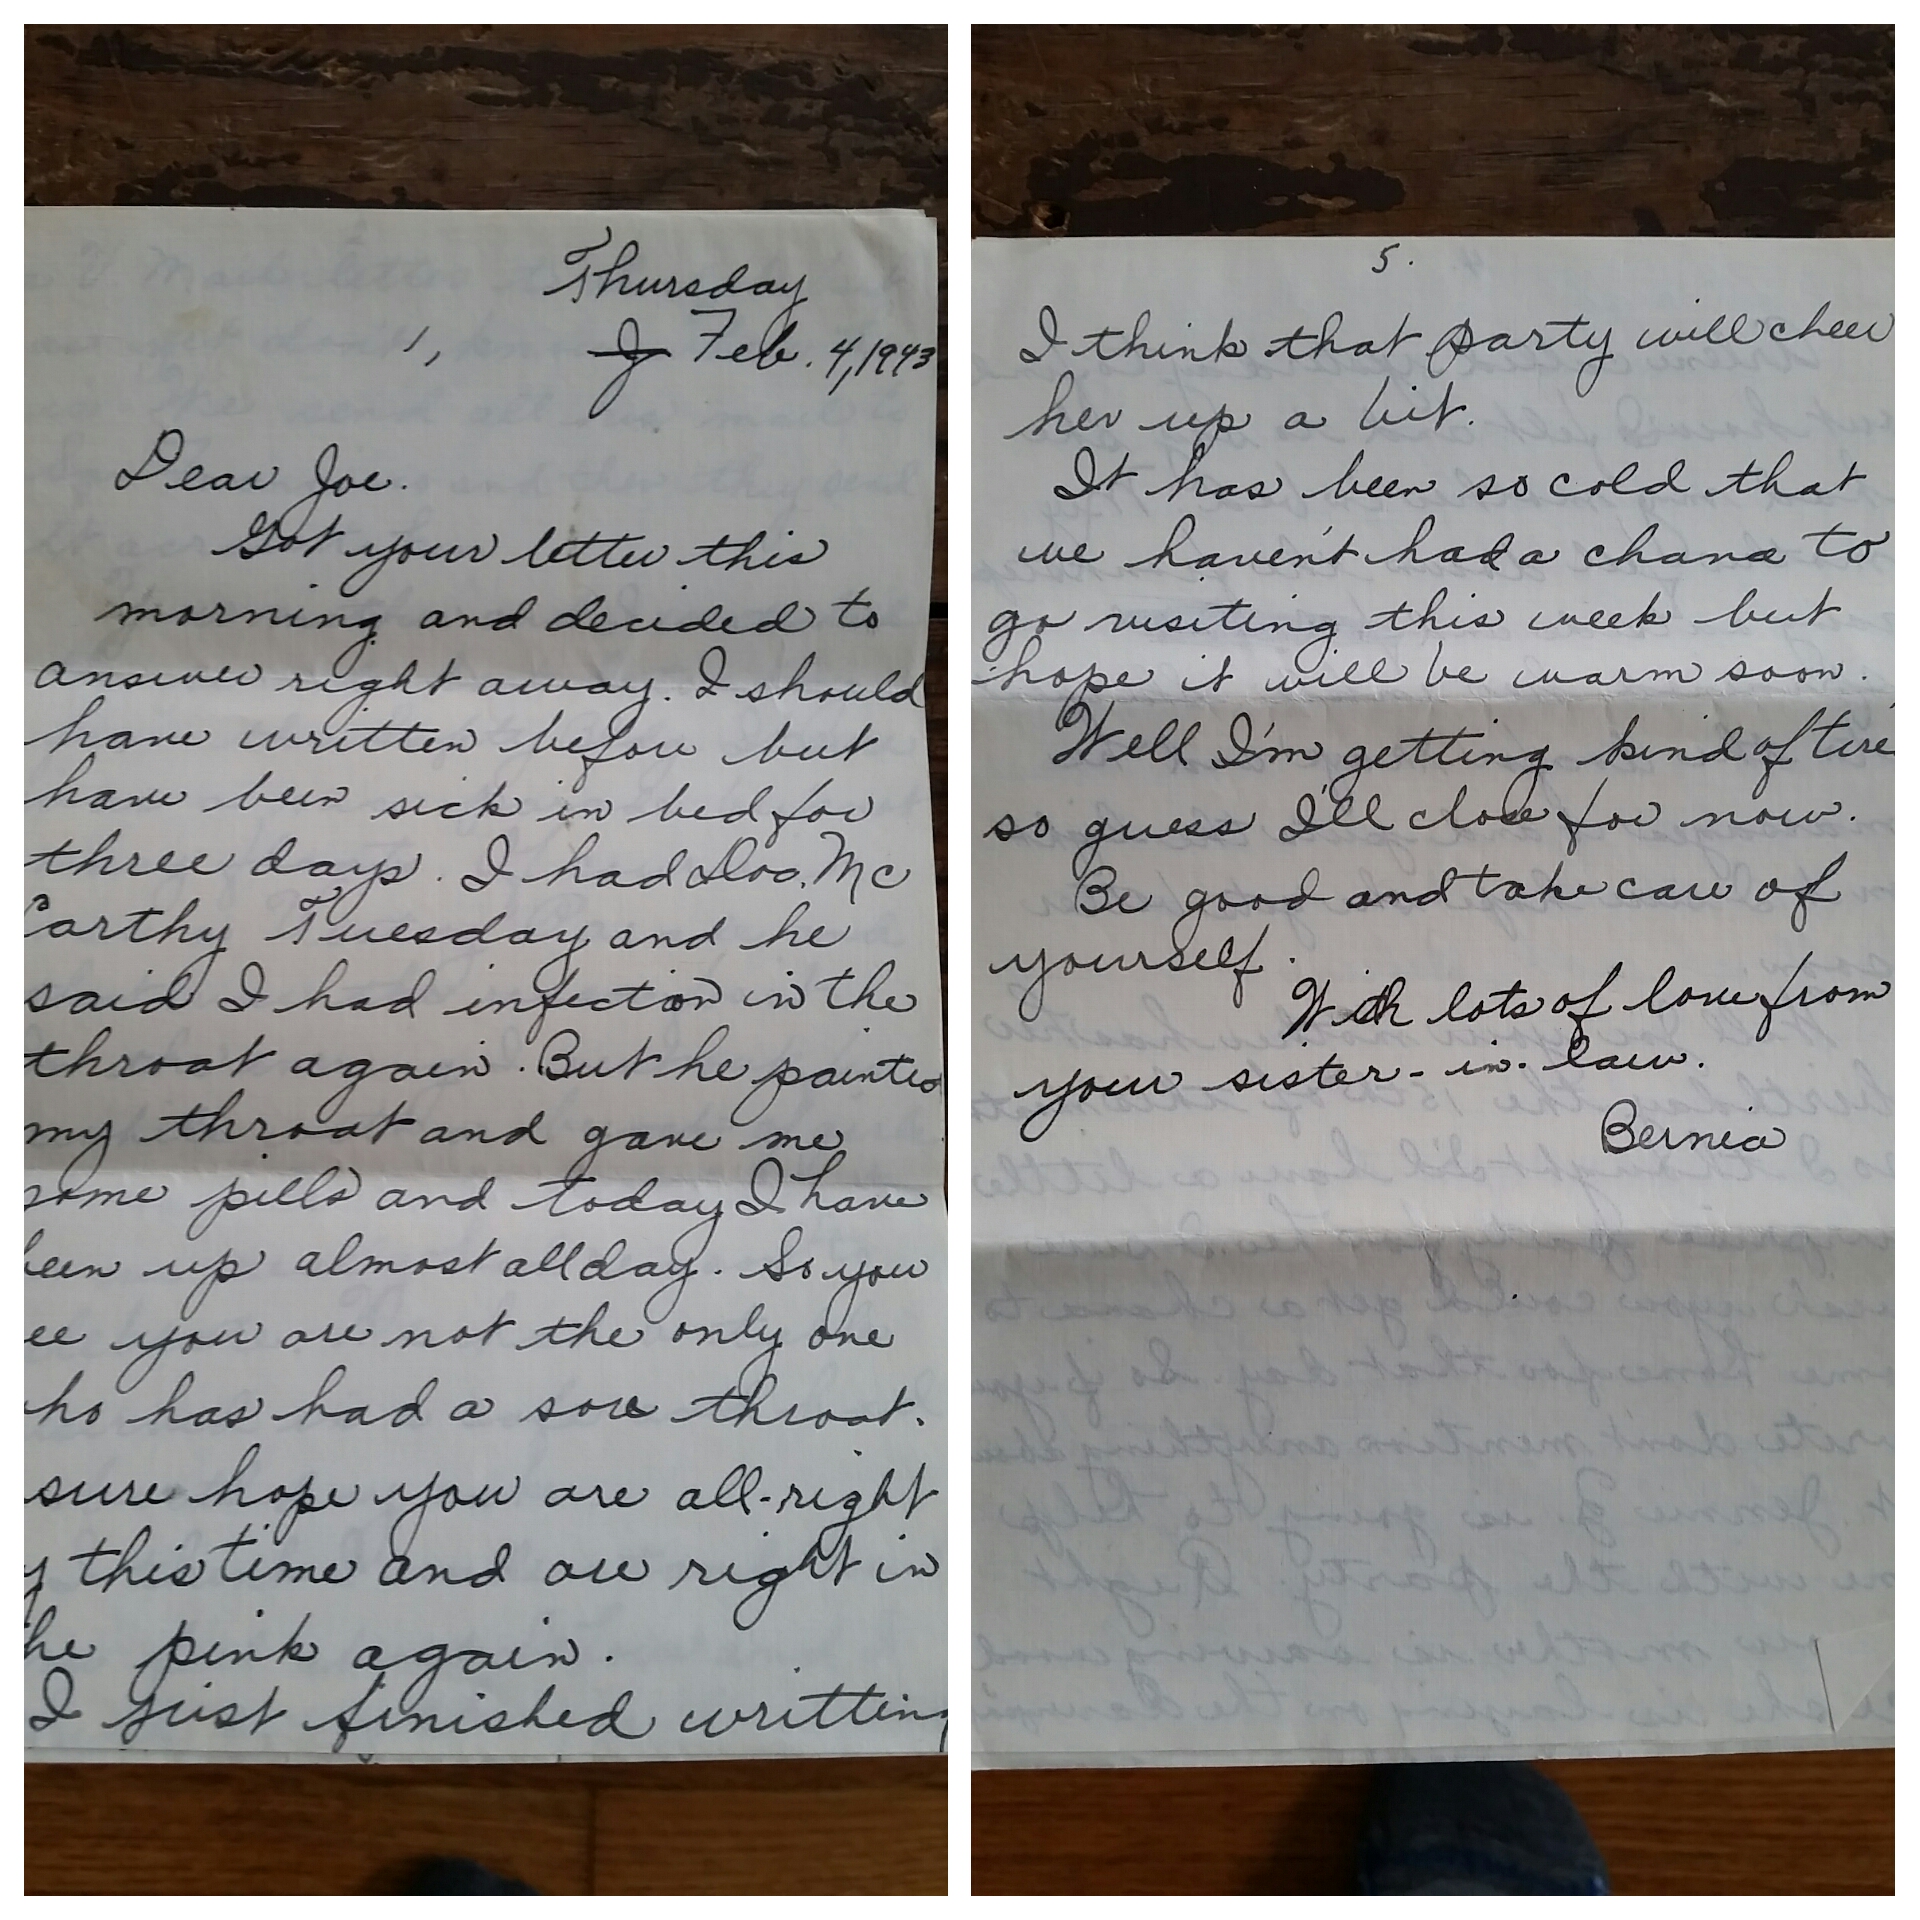 Thursday
1, J Feb. 4, 1943
Dear Joe.
Got your letter this
morning and decided to
answer right away. I should
have written before but
have been sick in bed for
three days. I had Doc. Mc
Carthy Tuesday and he
said I had infection in the
throat again. But he painted
my throat and gave me
some pills and today I have
been up almost all day. So you
ee you are not the only one
ho has had a sore throat.
sure hope you are all-right
y this time and are right in
he pink again.
I just finished writting
5.
I think that party will cheer
her up a bit.
It has been so cold that
we haven't had a chance to
go visiting this week but
hope it will be warm soon.
Well I'm getting kind of tire
so guess I'll close for now.
Be good and take care of
yourself.
With lots of love from
your sister-in-law.
Bernia